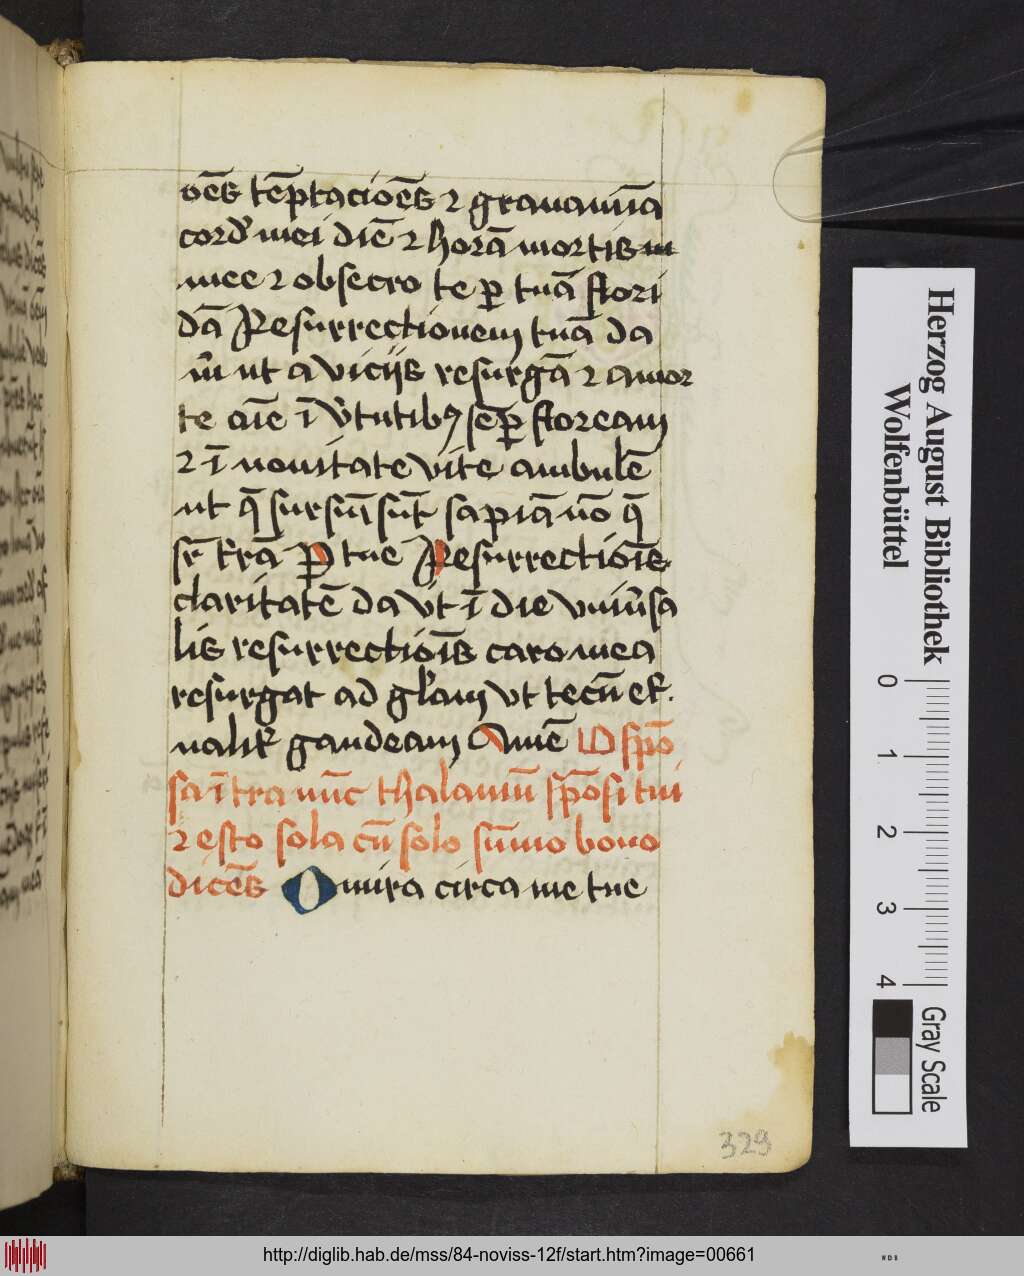 oēs tēptaciōēs ⁊ grauamīa
cord̉ mei diē ⁊ horā mortis m
mee ⁊ obsecro te ꝑ tuā flori
dā Resurrectionem tuā da
m̄ ut a viciis resurgā ⁊ a mor
te aīe ī v̉tutibꝫ sēꝑ floream
⁊ ī nouitate vite ambulē
ut q̄ sursū sūt sapiā nō q̄
sr̄ t̄rā ꝑ tue Resurrectiōīs
claritatē da vt ī die vniủsa
lis resurrectiōīs caro mea
resurgat ad gl̉am vt tecū et̉
nalit̉ gaudeam Amē O spō
sa ītra nūc thalamū spōsi tui
⁊ esto sola cū solo sūmo bono
dicēs O mira circa me tue
329
Herzog August Bibliothek
Wolfenbüttel
0 1 2 3 4
Gray Scale
http://diglib.hab.de/mss/84-noviss-12f/start.htm?image=00661